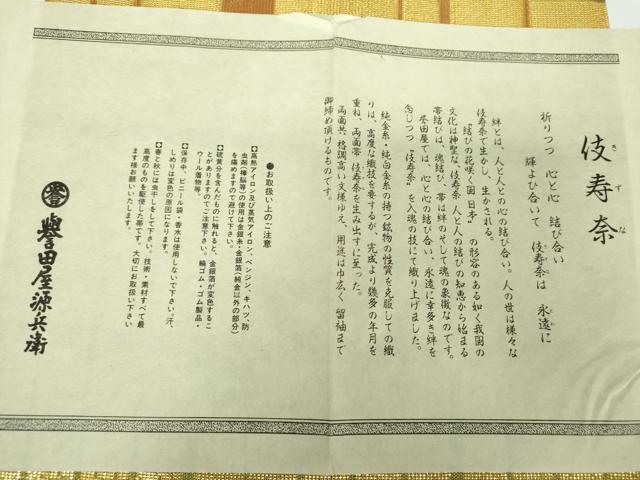 伎寿奈
きずな
祈りつつ 心と心 結び合い
輝よひ合いて 伎寿奈は 永遠に
絆とは、人と人との心の結び合い。人の世は様々な
伎寿奈で生かし、生かされる。
〝結びの花咲く国 日本〟の形容のある如く我国の
文化は神聖な、伎寿奈 人と人の結びの知恵から始まる
帯結びは、魂結び、帯は絆のそして魂の象徴なのです。
誉田屋では、心と心の結び合い、永遠に幸多き絆を
念じつつ〝伎寿奈〟を入魂の技にて織り上げました。
純金糸・純白金糸の持つ鉱物の性質を克服しての織
りは、高度な織技を要するが、完成より幾多の年月を
重ね、両面帯 伎寿奈を生み出すに至った。
両面共、格調高い文様ゆえ、用途は巾広く 留袖まで
御締め頂けるものです。
●お取扱い上のご注意
【高熱アイロン及び蒸気アイロン、ベンジン、キハツ、防
虫剤(樟脳等)の使用は金銀糸・金銀箔(純金以外の部分)
を痛めますので避けて下さい。
【硫黄分を含んだものに触れると、金銀箔が変色するこ
とがありますのでご注意下さい。輪ゴム・ゴム製品・
ウール着物等。
【保存中、ビニール袋・香水は使用しないで下さい。汗、
しめりは変色の原因になります。
【春と秋には虫干しをして下さい。技術・素材すべて最
高度のものを駆使した帯です。大切にお取扱い下さい
ます様お願いいたします。
誉 誉田屋源兵衛